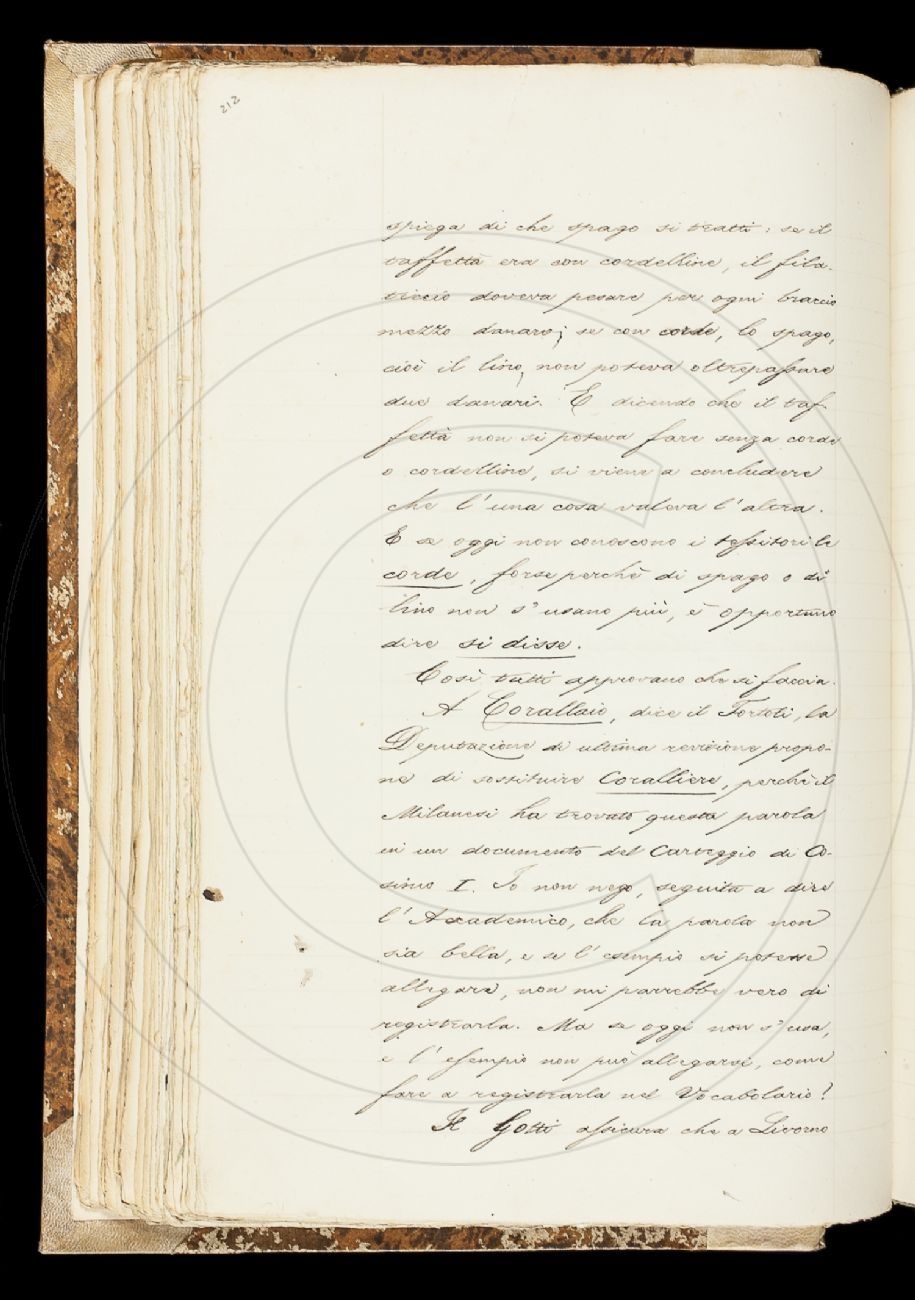 212
spiega di che spago si tratti: se il
taffettà era con cordelline, il fila-
ticcio doveva pesare per ogni braccio
mezzo danaro; se con corde, lo spago,
cioè il lino, non poteva oltrepassare
due danari. E dicendo che il taf-
fettà non si poteva fare senza corde
o cordelline, si viene a concludere
che l'una cosa valeva l'altra.
E se oggi non conoscono i tessitori le
corde, forse perchè di spago o di
lino non s'usano più, è opportuno
dire si disse.
Così tutti approvano che si faccia.
A Corallaio, dice il Tortoli, la
Deputazione di ultima revisione propo-
ne di sostituire Coralliere, perchè il
Milanesi ha trovato questa parola
in un documento del Carteggio di Co-
simo I. Io non nego, seguita a dire
l'Accademico, che la parola non
sia bella, e se l'esempio si potesse
allegare, non mi parrebbe vero di
registrarla. Ma se oggi non s'usa,
e l'esempio non può allegarsi, come
fare a registrarla nel Vocabolario?
Il Gotti assicura che a Livorno